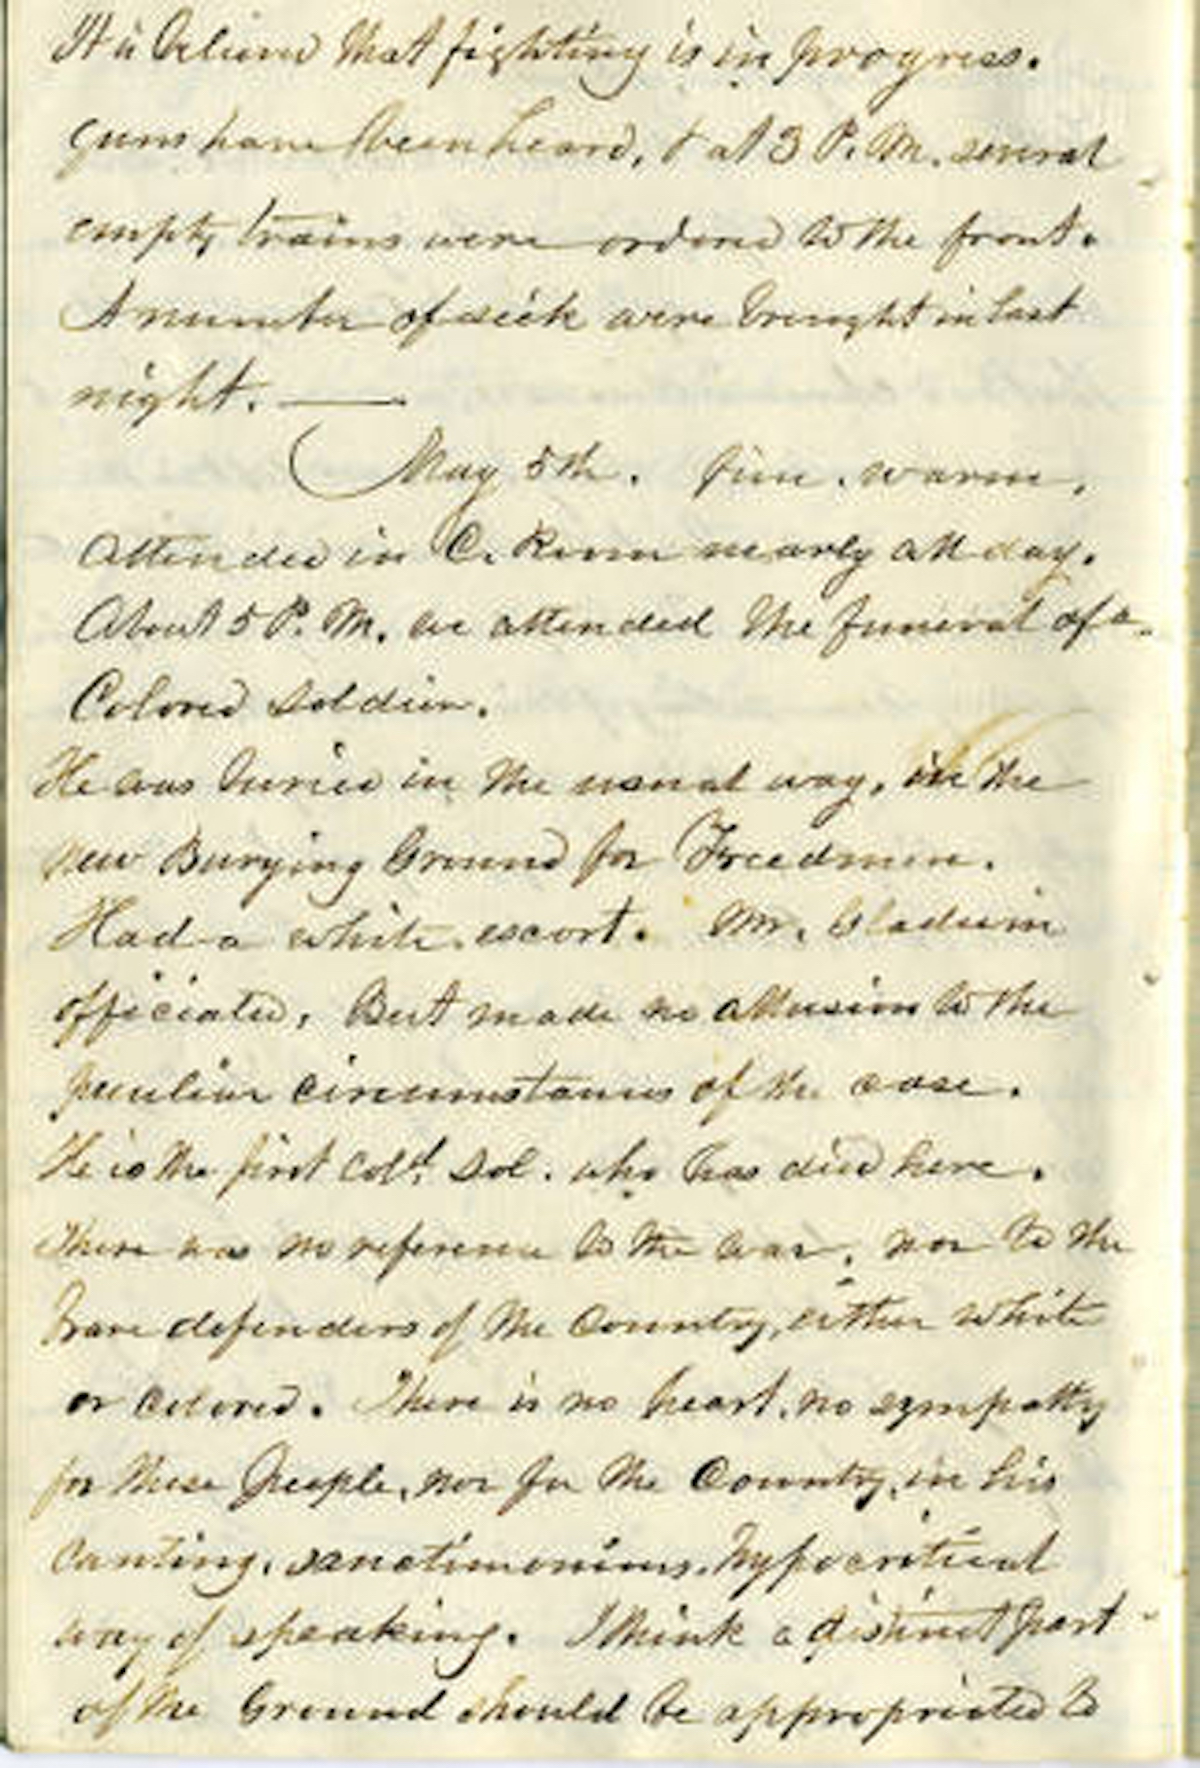 It is believed that fighting is in progress.
Guns have been heard, & at 3 P.M. several
empty trains were ordered to the front.
A number of sick were brought in last
night. —
May 5th. Fine. warm.
Attended in C. Room nearly all day.
About 5 P.M. we attended the funeral of a
Colored Soldier.
He was buried in the usual way, in the
new Burying Ground for Freedmen.
Had a white escort. Mr. Gladwin
officiated, But made no allusion to the
peculiar circumstances of the case.
He is the first Cold. Sol. who has died here.
There was no reference to the war, nor to the
brave defenders of the Country, either white
or colored. There is no heart, no sympathy
for these People, nor for the Country, in his
canting, sanctimonious, hypocritical
way of speaking. I think a distinct part
of the Ground should be appropriated to